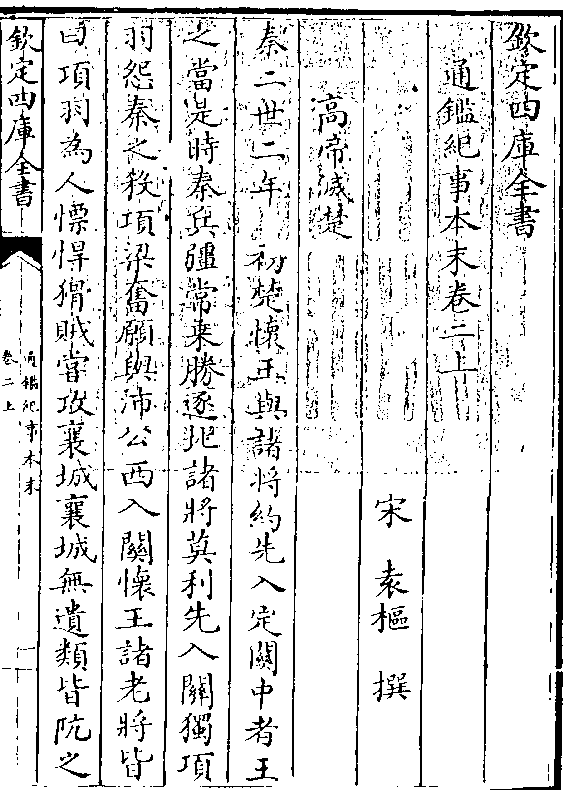 欽定四庫全書
通鑑紀事本末卷二上
宋 袁樞 撰
高帝滅楚
秦二世二年 初楚懷王與諸將約先入定關中者王
之當是時秦兵彊常乘勝逐北諸將莫利先入關獨項
羽怨秦之殺項梁奮願與沛公西入關懷王諸老將皆
曰項羽為人慓悍猾賊嘗攻襄城襄城無遺類皆阬之
欽定四庫全書
通鑑紀事本末
卷二上
一